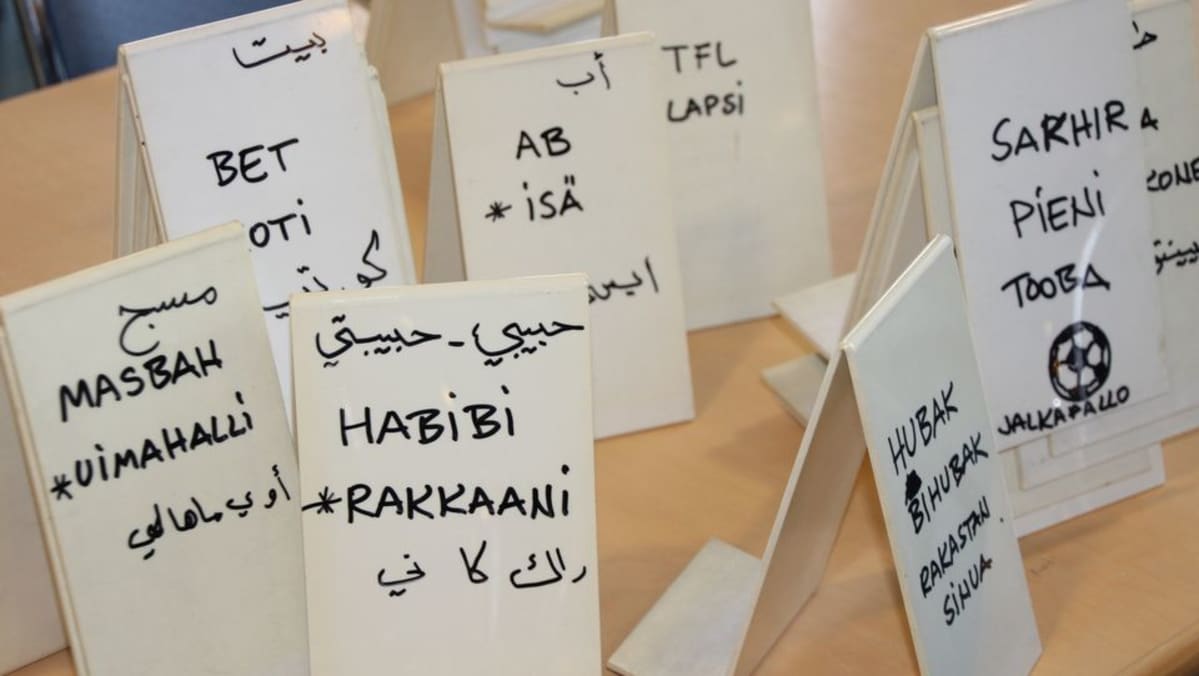 بيت
BET
OTi
كورتي
أب
AB
* iSÄ
TFL
LAPSi
SARHIR
PiENi
TOOBA
JALKAPALLO
A
KONE
مسبح
MASBAH
*UiMAHALLi
أوي ماهالي
حبيبي - حبيبتي
HABiBi
*RAKKAANi
راك كا ني
HUBAK
BIHUBAK
RAKASTAN
SiNUA